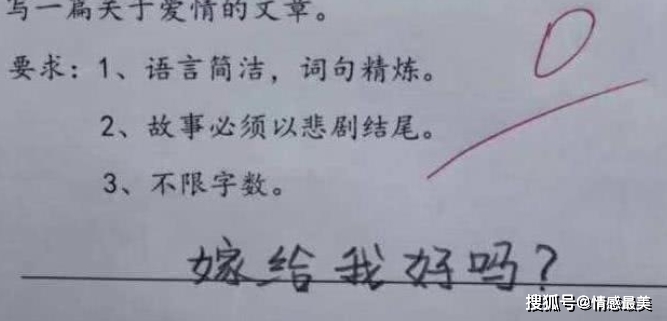 写一篇关于爱情的文章。
要求：1、语言简洁，词句精炼。
2、故事必须以悲剧结尾。
3、不限字数。
0
嫁给我好吗？
搜狐号@情感最美